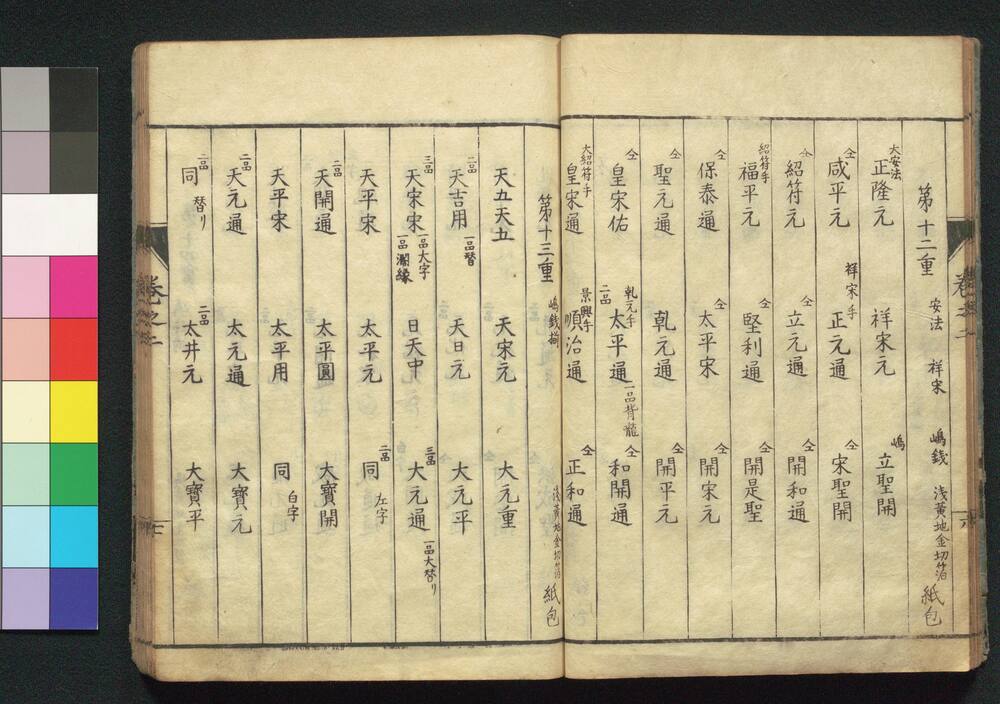 第十二重 安法 祥宋 嶋銭 浅黄地金切箔 紙包
大安法 正隆元 祥宋元 嶋 立聖開
仝 咸平元 祥宋手 正元通 仝 宋聖開
仝 紹符元 仝 立元通 仝 開和通
紹符手 福平元 仝 堅利通 仝 開是聖
仝 保泰通 仝 太平宋 仝 開宋元
仝 聖元通 乾元通 仝 開平元
仝 皇宋佑 乾元手 二品 太平通 一品背龍 仝 和開通
大紹符手 皇宋通 景興手 順治通 仝 正和通
第十三重 嶋銭揃 浅黄地金切箔 紙包
天五天五 天宋元 大元重
二品 天吉用 一品替 天日元 大元平
三品 天宋宋 一品大字 一品濶縁 日天中 三品 大元通 一品大替リ
天平宋 太平元 二品 同 左字
二品 天開通 太平圓 大寳開
天平宋 太平用 同 白字
二品 天元通 太元通 大寳元
二品 同 替リ 二品 太井元 大寳平
巻之二
巻之二